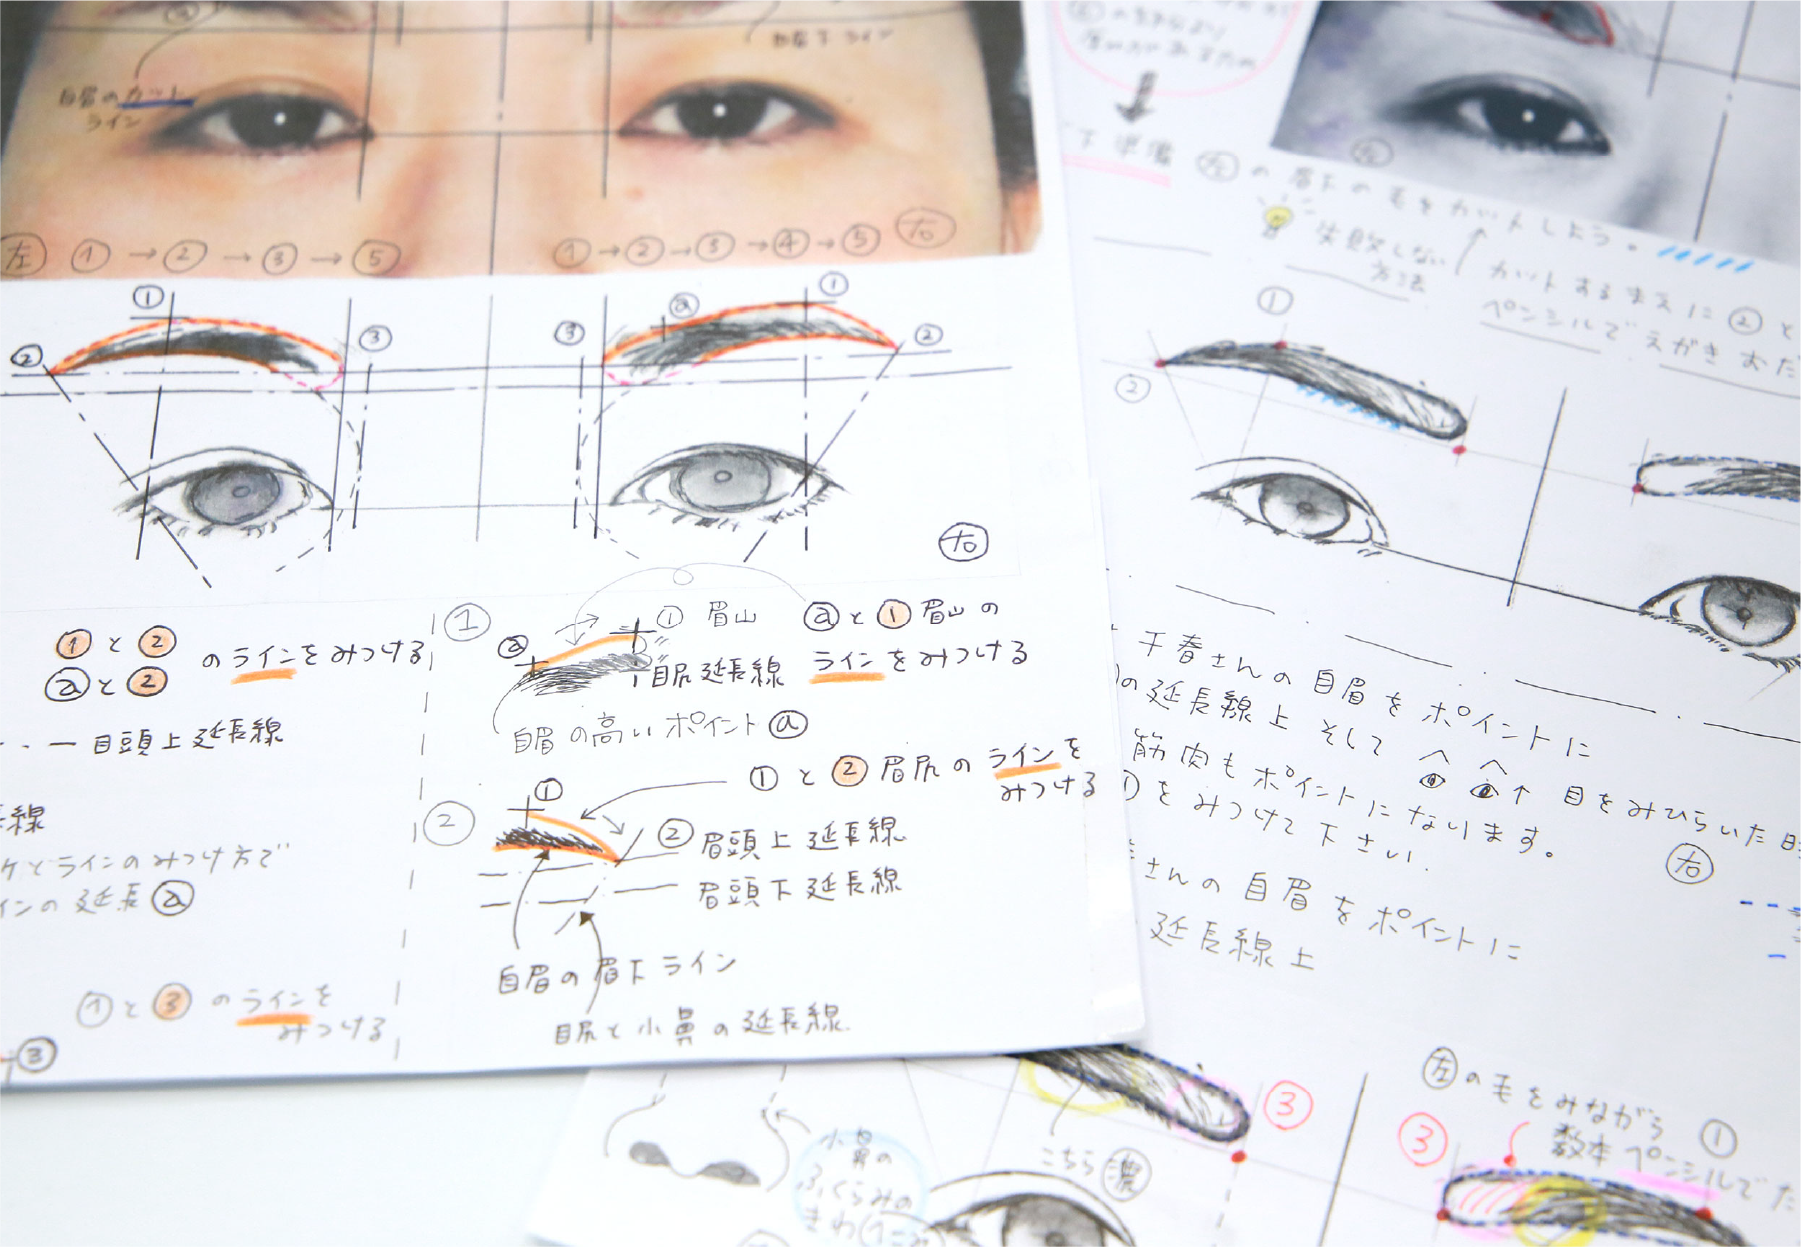 自眉のカット
ライン
左 ① → ② → ③ → ⑤
① → ② → ③ → ④ → ⑤ 右
①
②
③
③
ⓐ
①
②
右
① と ②
ⓐ と ②
の ラインを みつける
目頭上延長線
線
ラインの みつけ方で
インの 延長 ⓐ
① と ③ の ラインを
みつける
③
①
ⓐ
① 眉山
目尻延長線
ⓐ と ① 眉山の
ラインを みつける
自眉の高いポイント ⓐ
② ①
① と ② 眉尻の ラインを
みつける
② 眉頭上延長線
眉頭下延長線
自眉の眉下ライン
目尻と小鼻の延長線
下準備
左 の 眉下の毛をカットしよう。
失敗しない
方法
カットするまえに ② と
ペンシルで えがきおだ
①
②
千春さんの自眉をポイントに
の延長線上 そして
目をみひらいた時
筋肉もポイントになります。
① をみつけて下さい。
右
さんの自眉をポイントに
延長線上
小鼻の
ふくらみの
きわ
こちら 濃
③
左 の毛をみながら ①
③
数本ペンシルでた